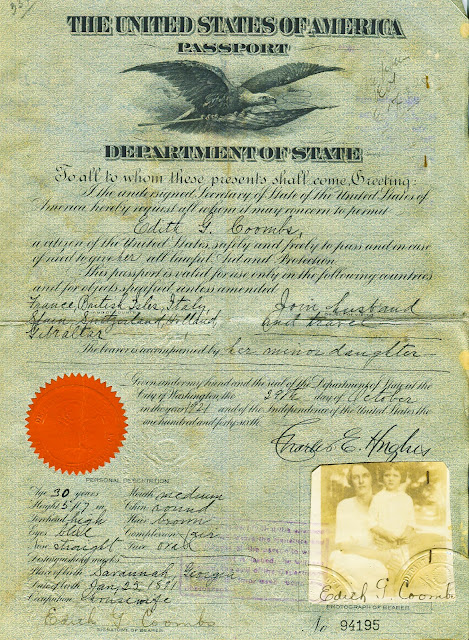 THE UNITED STATES OF AMERICA
PASSPORT
DEPARTMENT OF STATE
To all to whom these presents shall come, Greeting:
I the undersigned, Secretary of State of the United States of
America, hereby request all whom it may concern to permit
Edith G. Coombs,
a citizen of the United States, safely and freely to pass and in case
of need to give her all lawful Aid and Protection.
This passport is valid for use only in the following countries
and for objects specified, unless amended
France, British Isles, Italy, Join husband
Spain, Switzerland, Holland, and travel
Gibraltar
The bearer is accompanied by her minor daughter
Given under my hand and the seal of the Department of State at the
City of Washington, the 29th day of October
in the year 1921 and of the Independence of the United States the
one hundred and forty sixth.
Charles E. Hughes
PERSONAL DESCRIPTION
Age 30 years Mouth medium
Height 5 ft 7 in Chin round
Forehead high Hair brown
Eyes blue Complexion fair
Nose straight Face oval
Distinguishing marks
Place of birth Savannah Georgia
Date of birth Jan 22 1891
Occupation Housewife
Edith G. Coombs
SIGNATURE OF BEARER
Edith G. Coombs
PHOTOGRAPH OF BEARER
No 94195